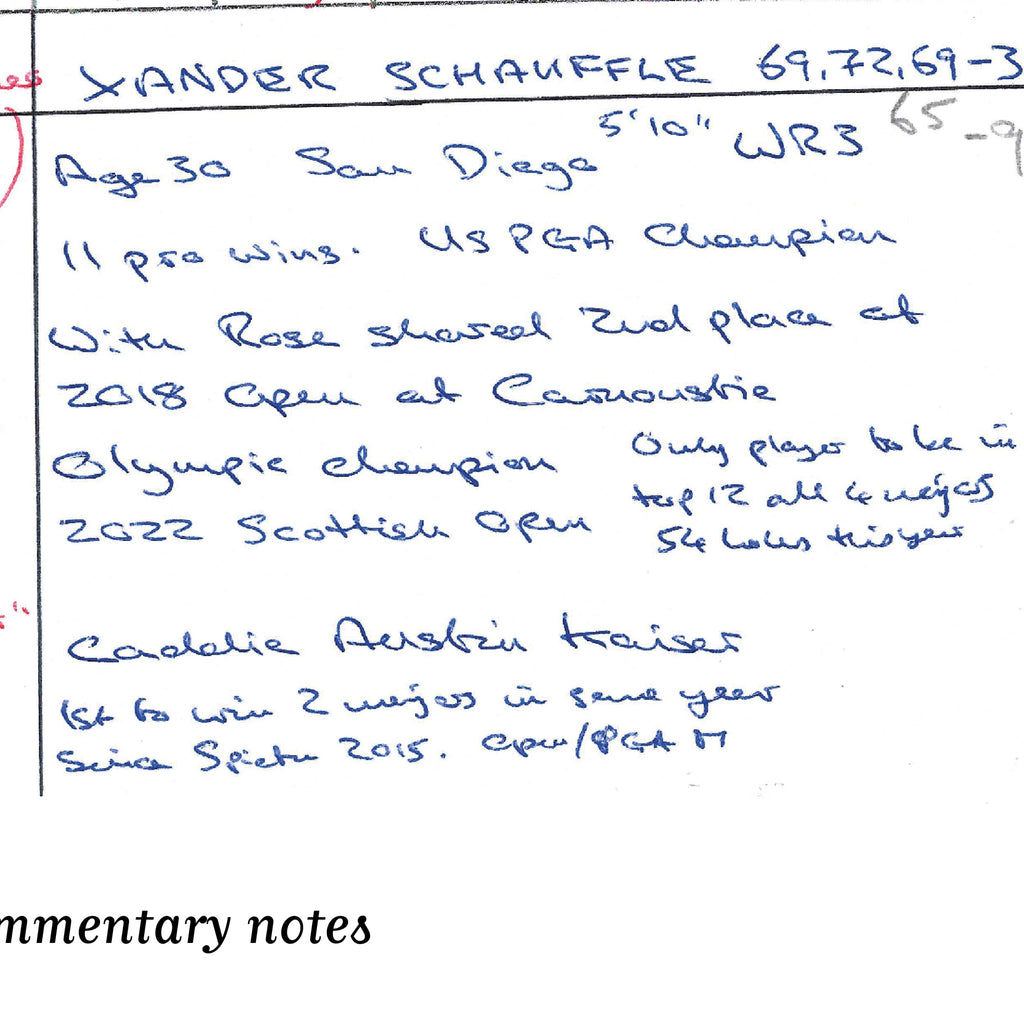 es XANDER SCHAUFFLE 69,72,69-3
65-9
Age 30 San Diego 5'10" WR3
11 pro wins. US PGA Champion
With Rose shared 2nd place at
2018 Open at Carnoustie
Olympic champion
2022 Scottish Open
Only player to be in
top 12 all 4 majors
54 holes this year
Caddie Austin Kaiser
1st to win 2 majors in same year
Since Spieth 2015. Open/PGA
mmentary notes